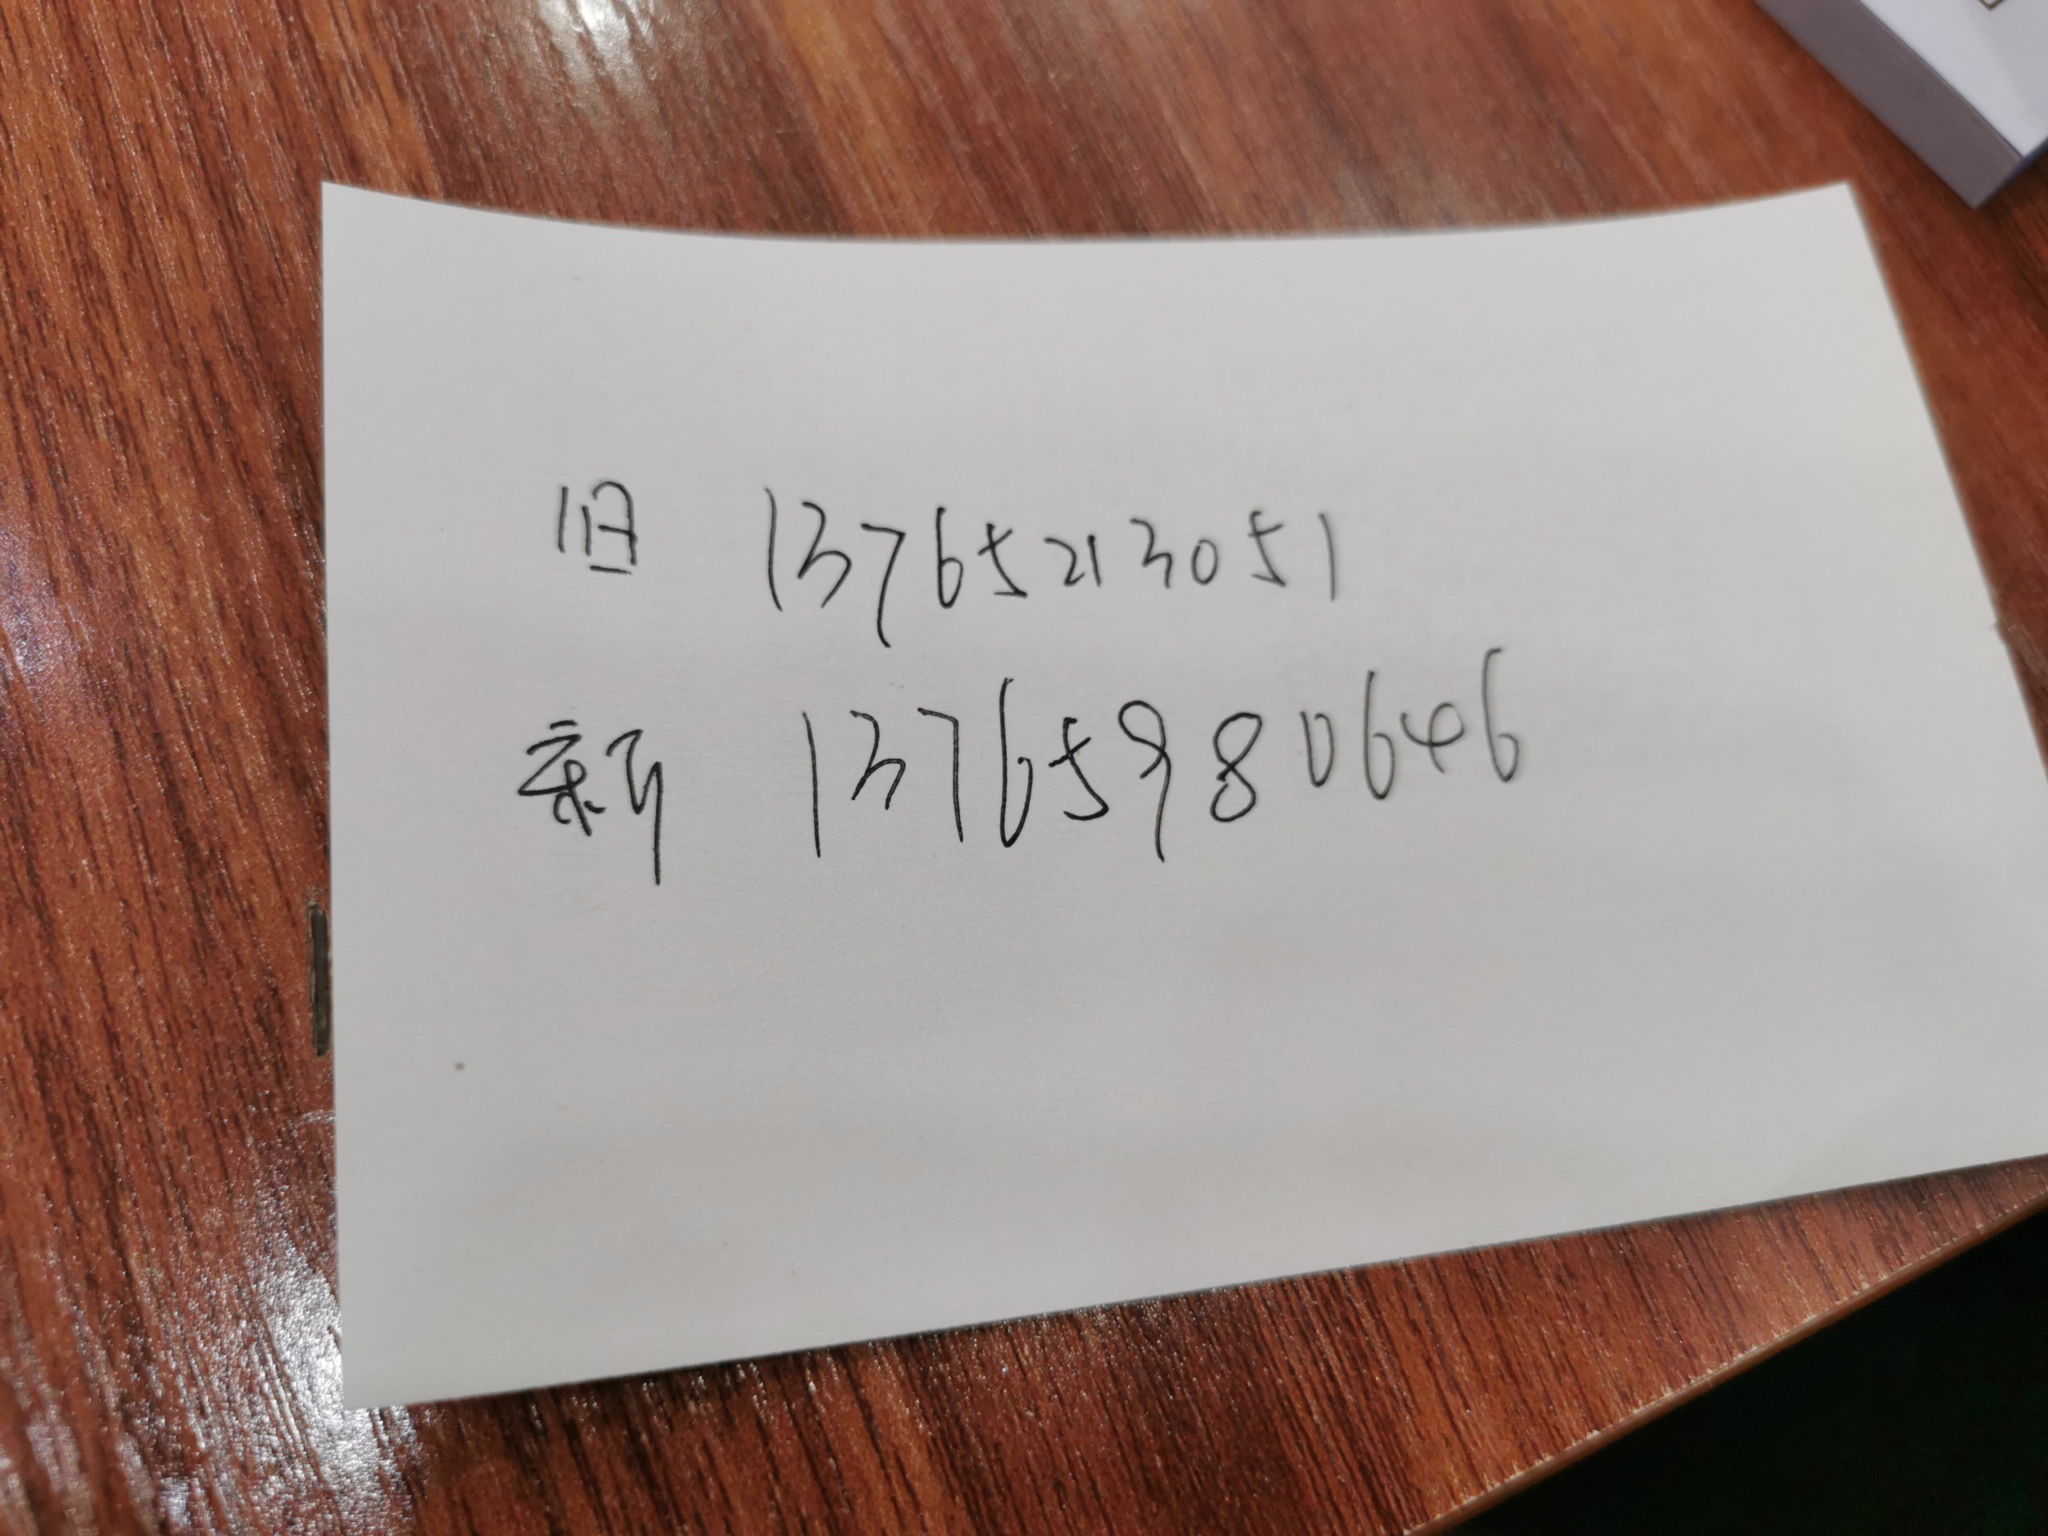 旧 13765213051
新 13765980646